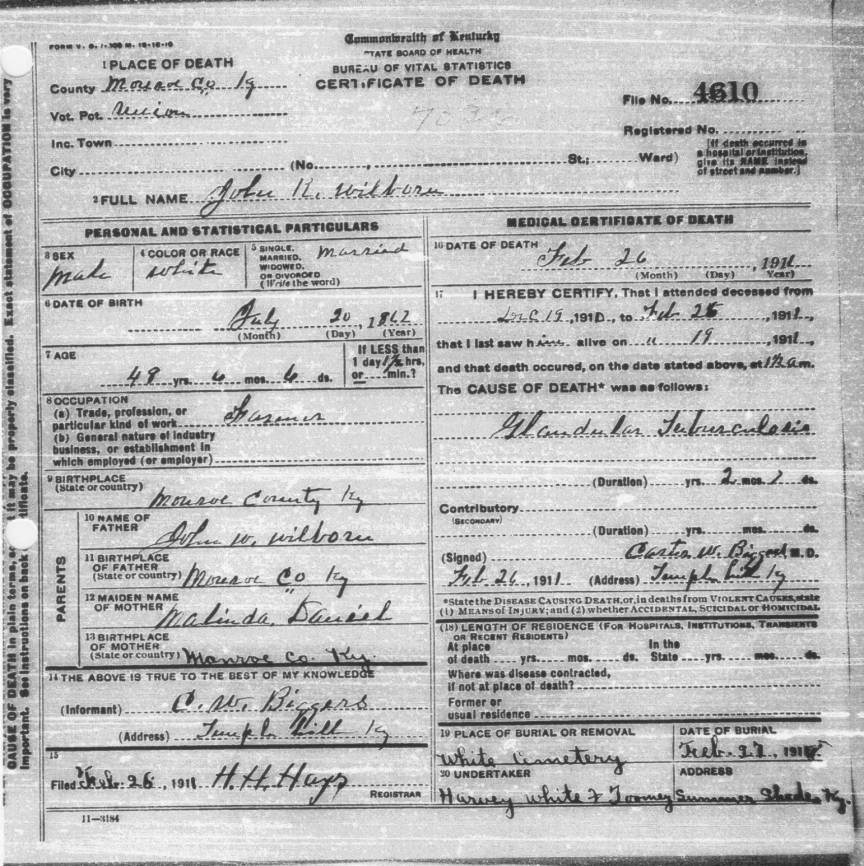 FORM V. S. 1-100 M. 12-12-10
Commonwealth of Kentucky
STATE BOARD OF HEALTH
BUREAU OF VITAL STATISTICS
CERTIFICATE OF DEATH
1 PLACE OF DEATH
County Monroe Co Ky
Vot. Pot. Union
Inc. Town
City (No. , St.; Ward)
File No. 4610
Registered No.
[If death occurred in
a hospital or institution,
give its NAME instead
of street and number.]
2 FULL NAME John R. Wilborn
PERSONAL AND STATISTICAL PARTICULARS
3 SEX
Male
4 COLOR OR RACE
White
5 SINGLE,
MARRIED,
WIDOWED,
OR DIVORCED
(Write the word)
Married
6 DATE OF BIRTH
July 20, 1862
(Month) (Day) (Year)
7 AGE
48 yrs. 6 mos. 6 ds.
If LESS than
1 day hrs.
or min.?
8 OCCUPATION
(a) Trade, profession, or
particular kind of work Farmer
(b) General nature of industry
business, or establishment in
which employed (or employer)
9 BIRTHPLACE
(State or country) Monroe County Ky
PARENTS
10 NAME OF
FATHER John W. Wilborn
11 BIRTHPLACE
OF FATHER
(State or country) Monroe Co Ky
12 MAIDEN NAME
OF MOTHER Malinda Daniel
13 BIRTHPLACE
OF MOTHER
(State or country) Monroe Co. Ky.
14 THE ABOVE IS TRUE TO THE BEST OF MY KNOWLEDGE
(Informant) C. W. Biggers
(Address) Temple Hill Ky
15
Filed Feb. 26, 1911 H. H. Hays
REGISTRAR
11-3184
MEDICAL CERTIFICATE OF DEATH
16 DATE OF DEATH
Feb 26, 1911
(Month) (Day) (Year)
17 I HEREBY CERTIFY, That I attended deceased from
Dec 19, 1910, to Feb 25, 1911,
that I last saw him alive on " 19, 1911,
and that death occured, on the date stated above, at m.
The CAUSE OF DEATH* was as follows:
Glandular Tuberculosis
(Duration) yrs. 2 mos. 7 ds.
Contributory
(SECONDARY)
(Duration) yrs. mos. ds.
(Signed) W. Biggers, M. D.
Feb. 26, 1911 (Address) Temple Hill Ky
*State the DISEASE CAUSING DEATH, or, in deaths from VIOLENT CAUSES, state
(1) MEANS OF INJURY; and (2) whether ACCIDENTAL, SUICIDAL OR HOMICIDAL
(18) LENGTH OF RESIDENCE (FOR HOSPITALS, INSTITUTIONS, TRANSIENTS
OR RECENT RESIDENTS)
At place In the
of death yrs. mos. ds. State yrs. mos. ds.
Where was disease contracted,
if not at place of death?
Former or
usual residence
19 PLACE OF BURIAL OR REMOVAL
White Cemetery
DATE OF BURIAL
Feb. 27, 1911
20 UNDERTAKER
ADDRESS
Harvey White & Toomey Summer Shade, Ky.
CAUSE OF DEATH in plain terms, so it may be properly classified. Exact statement of OCCUPATION is very
important. See instructions on back of certificate.